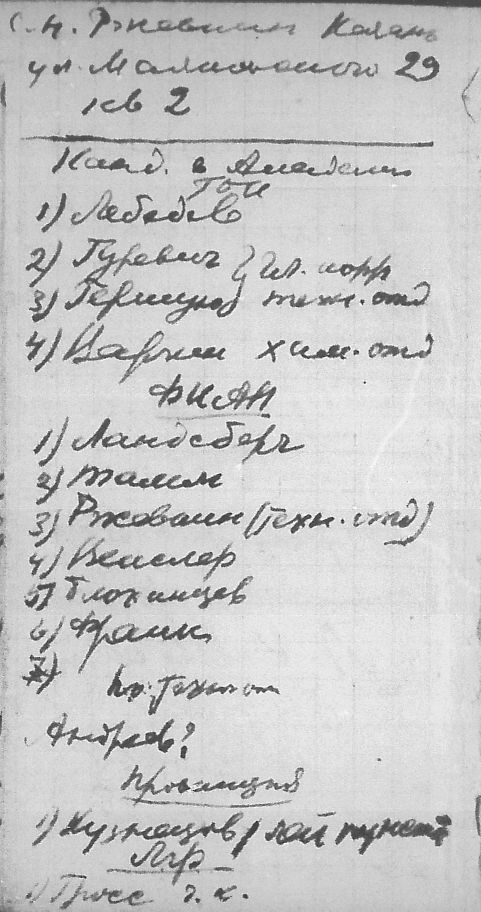 С. Н. Ржевкин Казань
ул. Маяковского 29
кв 2
Канд. в Академию
ГОИ
1) Лебедев
2) Гуревич } чл. корр
3) Гершун техн. отд
4) Варгин хим. отд
ФИАН
1) Ландсберг
2) Тамм
3) Ржевкин (Техн. отд)
4) Векслер
5) Блохинцев
6) Франк
7)
Андреев?
Провинция
1) Кузнецов
Лгр
1) Гросс ч. к.